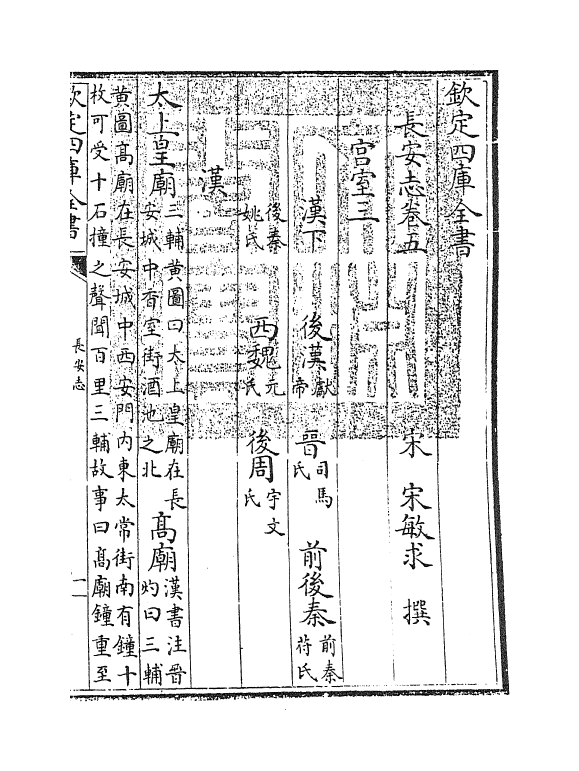 欽定四庫全書
長安志卷五
宋 宋敏求 撰
宫室三
漢下 後漢獻帝 晉司馬氏 前後秦前秦苻氏
後秦姚氏 西魏元氏 後周宇文氏
漢
太上皇廟三輔黄圖曰太上皇廟在長安城中香室街酒池之北 髙廟漢書注晉灼曰三輔
黄圖髙廟在長安城中西安門内東太常街南有鐘十
枚可受十石撞之聲聞百里三輔故事曰髙廟鐘重至
欽定四庫全書
長安志
一